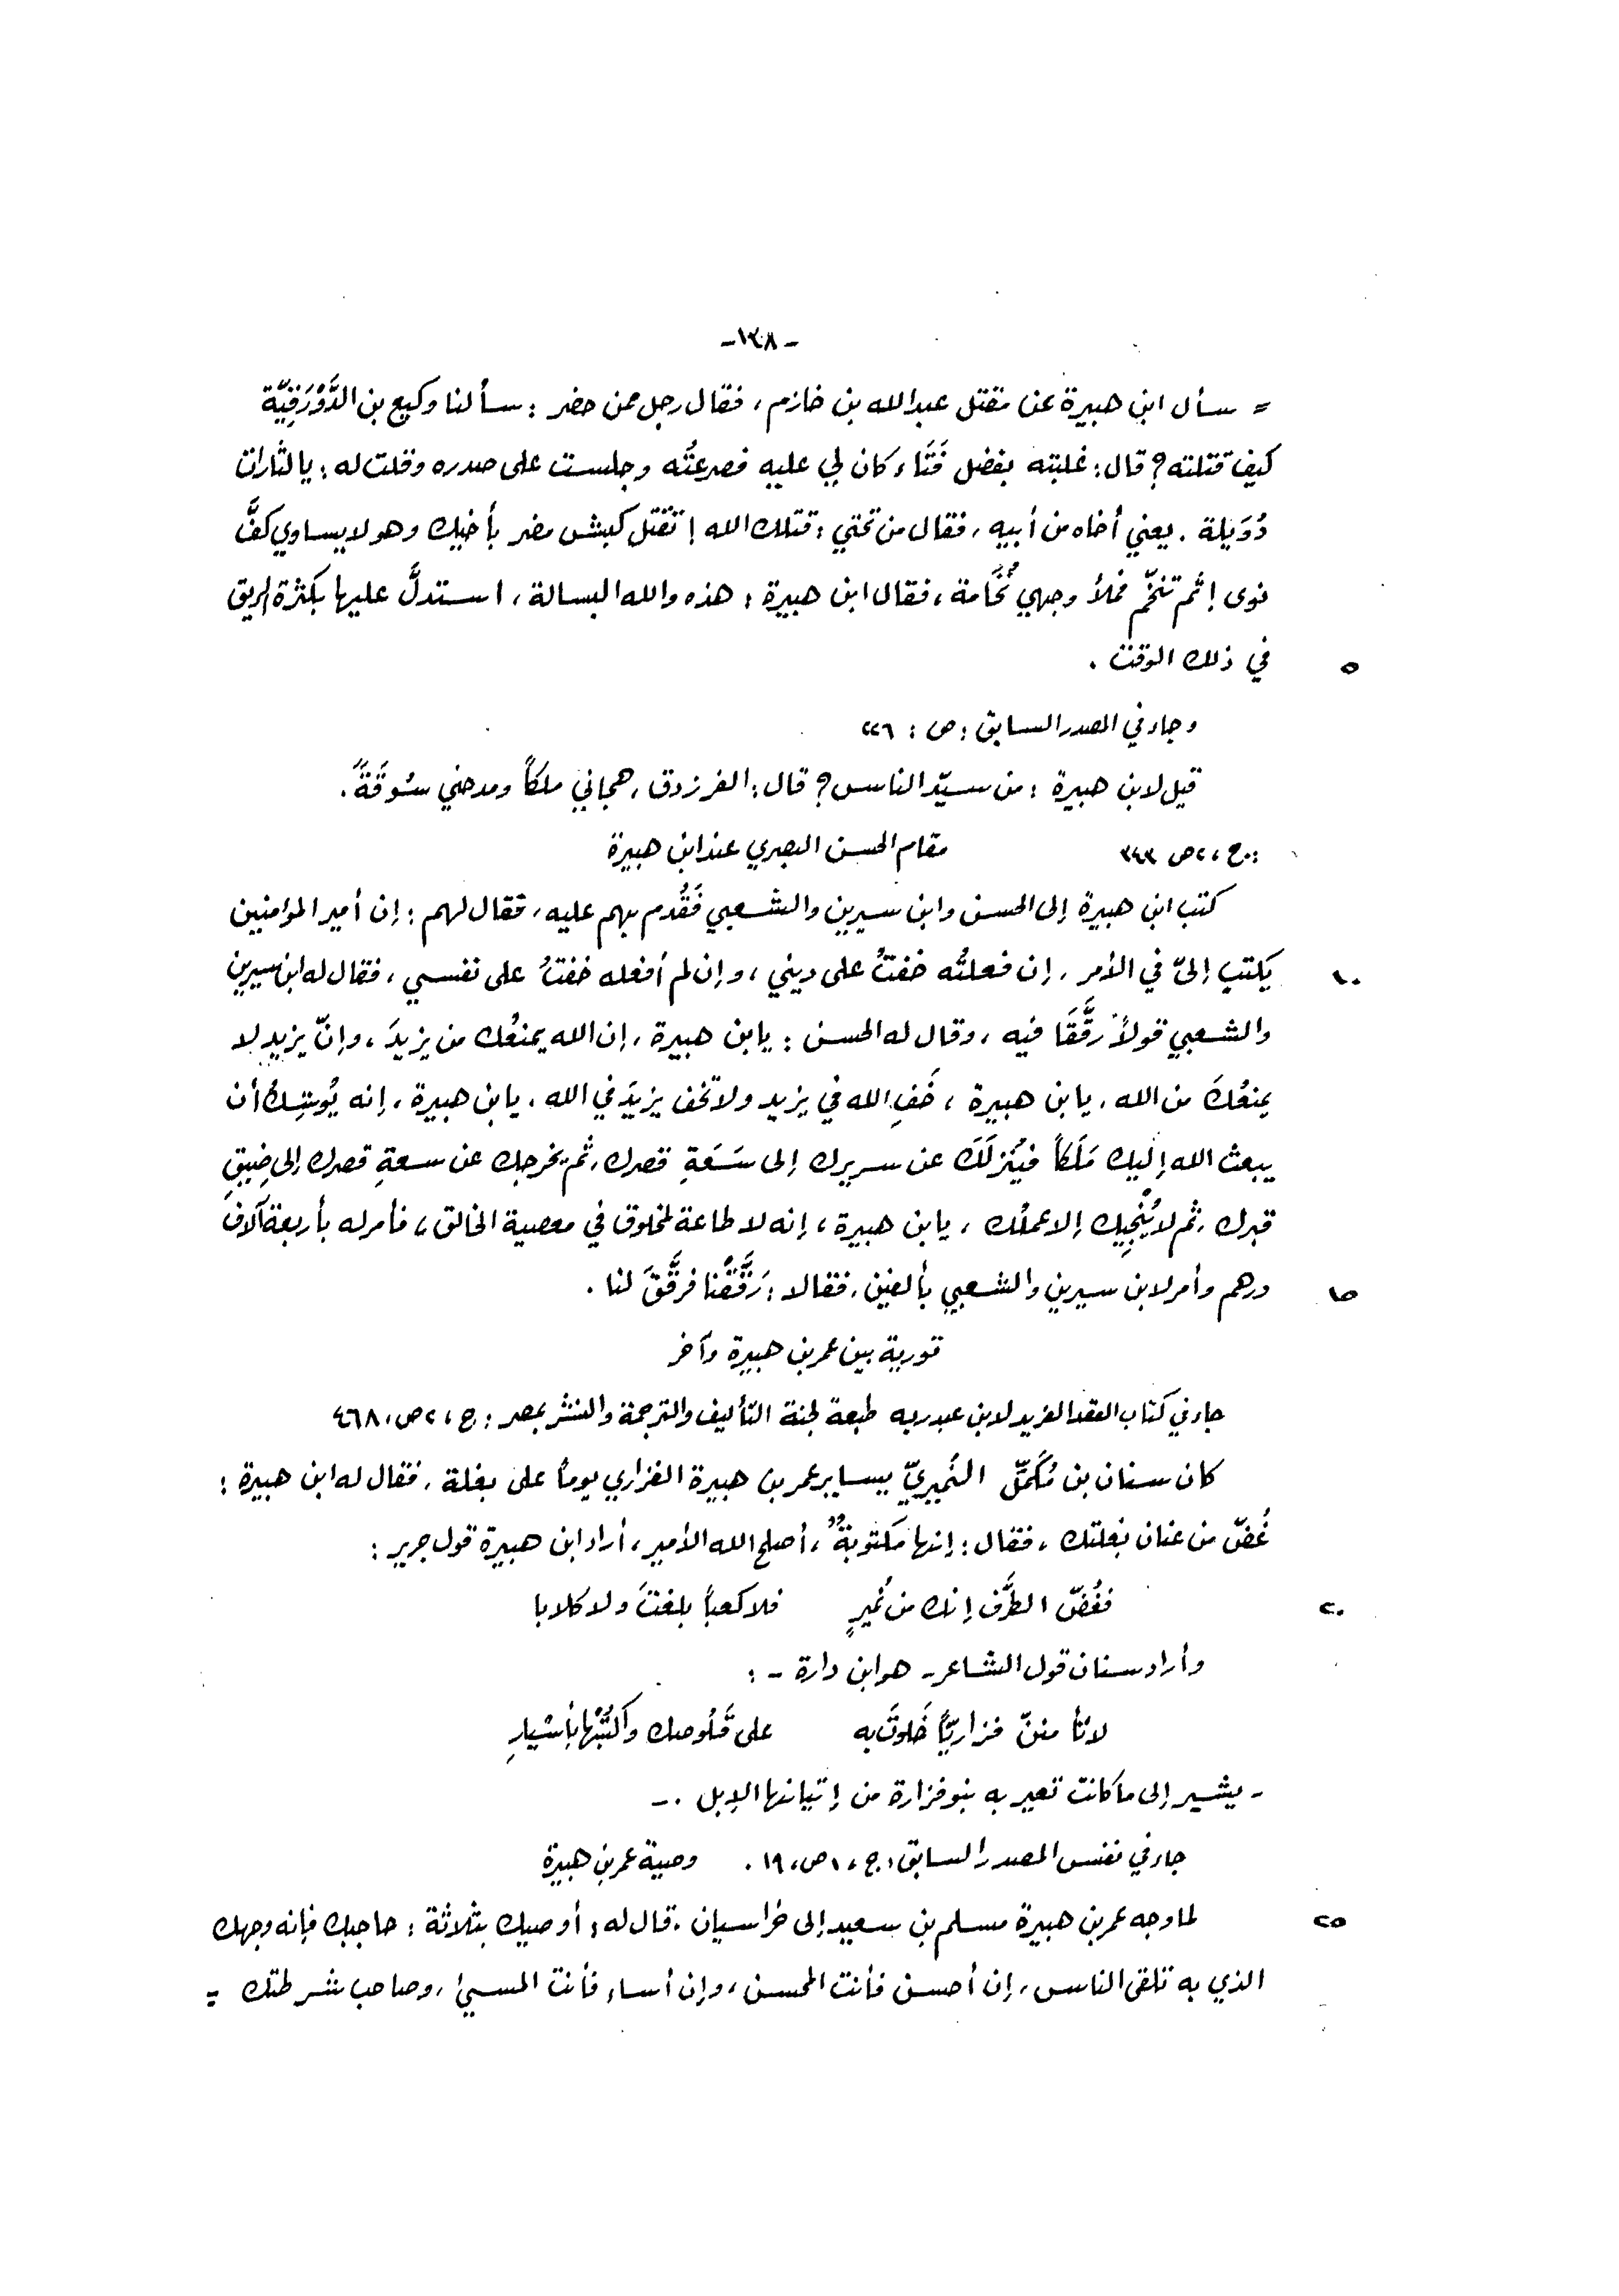 -١٣٨-
= سأل ابن هبيرة عن مقتل عبدالله بن خازم، فقال رجل ممن حضر : سألنا وكيع بن الدَّوْرَقِيّة
كيف قتلته؟ قال: غلبته بفضل فَتَاء كان لي عليه فصرعتُه وجلست على صدره وقلت له : يالثارات
دُوَيلة . يعني أخاه من أبيه، فقال من تحتي : قتلك الله ! تقتل كبش مضر بأخيك وهو لايساوي كفَّ
نوى ! ثم تنخّم فملأ وجهي نُخَامة، فقال ابن هبيرة : هذه والله البسالة، استدلَّ عليها بكثرة الريق
٥ في ذلك الوقت .
وجاء في المصدر السابق : ص : ٢٢٦
قيل لابن هبيرة : من سيّد الناس؟ قال : الفرزدق، هجاني ملكاً ومدحني سُوقَةً .
: ج ، ٢ ص ٣٤٣ مقام الحسن البصري عند ابن هبيرة
كتب ابن هبيرة إلى الحسن وابن سيرين والشعبي فَقُدم بهم عليه، فقال لهم : إن أمير المؤمنين
١٠ يكتب إليّ في الأمر، إن فعلتُه خفتُ على ديني، وإن لم أفعله خفتُ على نفسي، فقال له ابن سيرين
والشعبي قولاً رقَّقَا فيه، وقال له الحسن : يابن هبيرة، إن الله يمنعُك من يزيدَ، وإنّ يزيد لا
يمنعُكَ من الله، يابن هبيرة، خَفِ الله في يزيد ولاتخف يزيدَ في الله، يابن هبيرة، إنه يُوشِكُ أن
يبعث الله إليك مَلَكاً فيُنزلَكَ عن سريرك إلى سَعَةِ قصرك، ثم يخرجك عن سعةِ قصرك إلى ضِيقِ
قبرك، ثم لايُنْجِيك إلا عملُك، يابن هبيرة، إنه لا طاعة لمخلوق في معصية الخالق، فأمر له بأربعة آلاف
١٥ درهم وأمر لابن سيرين والشعبي بألفين، فقالا : رَقَّقْنا فرقَّقَ لنا .
تورية بين عمر بن هبيرة وآخر
جاء في كتاب العقد الفريد لابن عبد ربه طبعة لجنة التأليف والترجمة والنشر بمصر : ج ، ٢ ص ، ٤٦٨
كان سنان بن مُكَمَّل النُميريّ يساير عمر بن هبيرة الفزاري يوماً على بغلة، فقال له ابن هبيرة :
غُضّ من عنان بغلتك، فقال : إنها مَكتوبةٌ، أصلح الله الأمير، أراد ابن هبيرة قول جرير :
٢٠ فغُضّ الطَّرْف إنك من نُميرٍ فلا كعباً بلغتَ ولا كلابا
وأراد سنان قول الشاعر - هو ابن دارة - :
لاتأ منن فزاريّاً خَلوتَ به على قَلُوصك وآكتُبْها بأَسْيارِ
- يشير إلى ماكانت تعير به بنو فزارة من إتيانها الإبل . -
جاء في نفس المصدر السابق : ج ، ١ ص ، ١٩ . وصية عمر بن هبيرة
٢٥ لما وجه عمر بن هبيرة مسلم بن سعيد إلى خراسان، قال له : أوصيك بثلاثة : حاجبك فإنه وجهك
الذي به تلقى الناس، إن أحسن فأنت المحسن، وإن أساء فأنت المسيئ، وصاحب شرطتك =